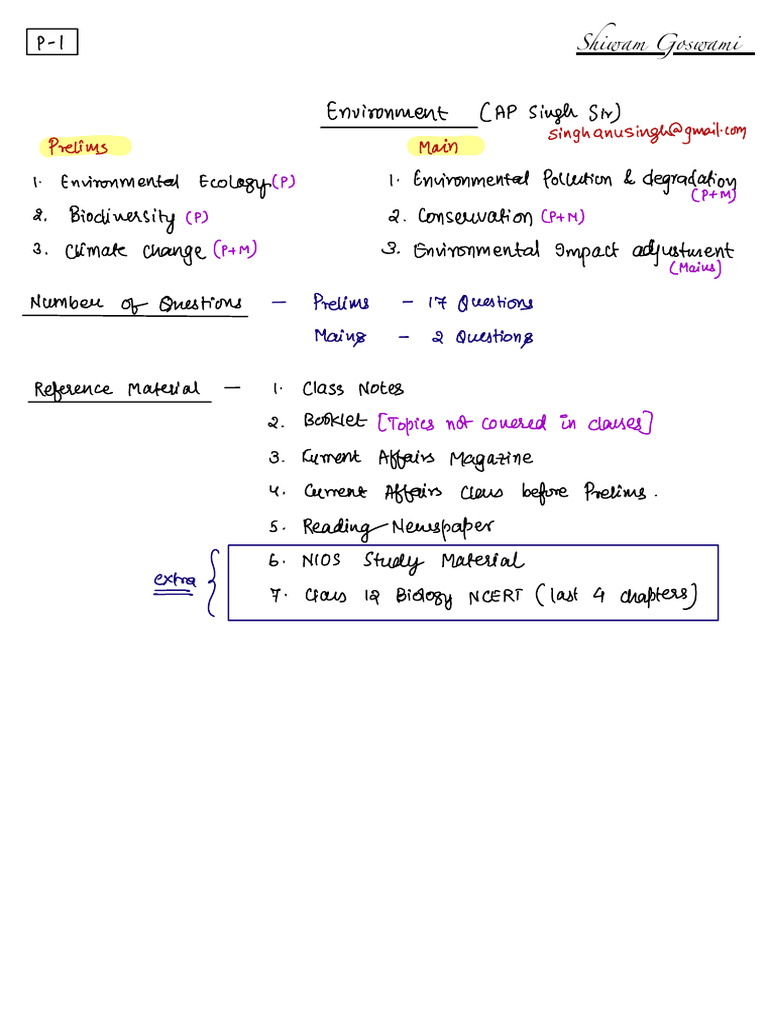 P-1
Shiwam Goswami
Environment (AP Singh Sir)
singhanusingh@gmail.com
Prelims
1. Environmental Ecology (P)
2. Biodiversity (P)
3. Climate change (P+M)
Main
1. Environmental Pollution & degradation (P+M)
2. Conservation (P+M)
3. Environmental Impact adjustment (Mains)
Number of Questions - Prelims - 17 Questions
Mains - 2 Questions
Reference Material - 1. Class Notes
2. Booklet [Topics not covered in classes]
3. Current Affairs Magazine
4. Current Affairs Class before Prelims.
5. Reading Newspaper
extra
6. NIOS Study Material
7. Class 12 Biology NCERT (last 4 chapters)